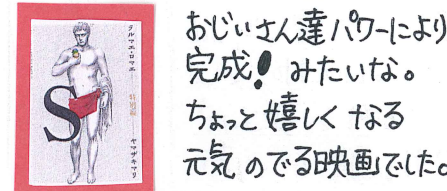 テルマエ・ロマエ
特別編
S
ヤマザキマリ
おじいさん達パワーにより
完成！みたいな。
ちょっと嬉しくなる
元気のでる映画でした。